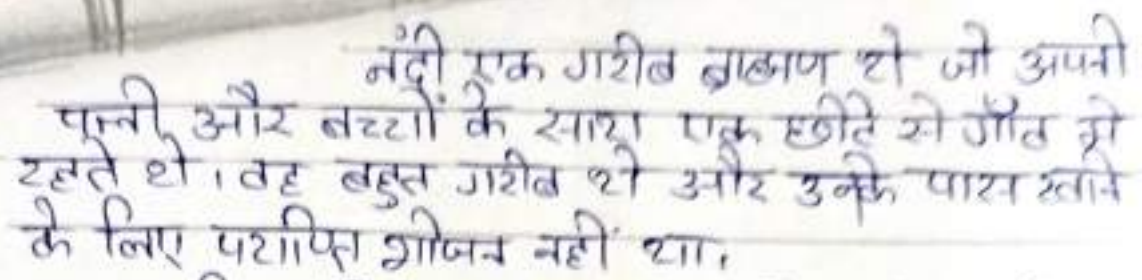 नंदी एक गरीब ब्राह्मण थे जो अपनी
पत्नी और बच्चों के साथ एक छोटे से गाँव में
रहते थे। वह बहुत गरीब थे और उनके पास खाने
के लिए पर्याप्त भोजन नहीं था।